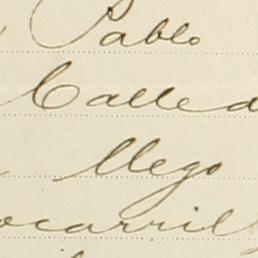 Pablo
Calle d
llego
ocarril